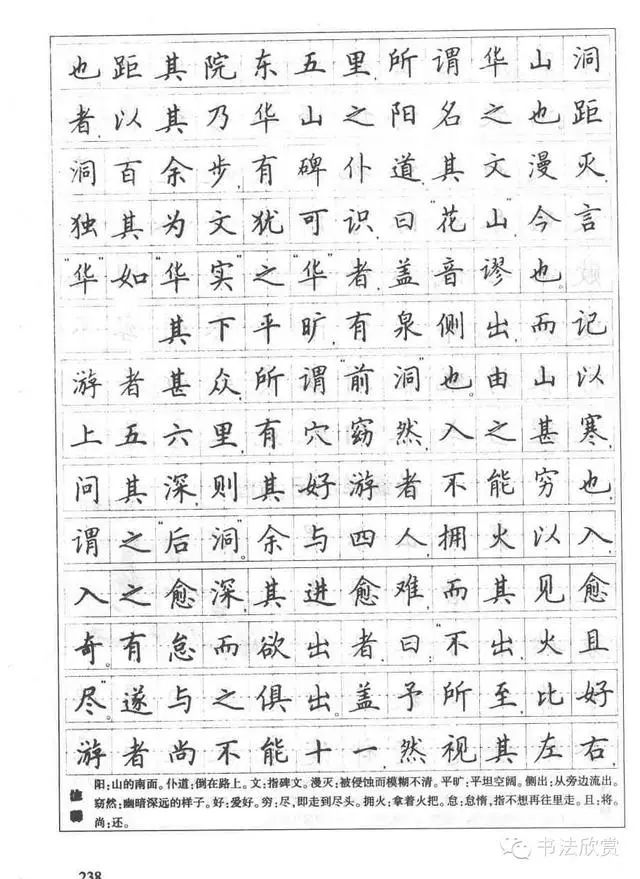 也距其院东五里,所谓华山洞
者,以其乃华山之阳名之也。距
洞百余步,有碑仆道,其文漫灭,
独其为文犹可识,曰“花山”。今言
“华”如“华实”之“华”者,盖音谬也。
其下平旷,有泉侧出,而记
游者甚众,所谓“前洞”也。由山以
上五六里,有穴窈然,入之甚寒,
问其深,则其好游者不能穷也,
谓之“后洞”。余与四人拥火以入,
入之愈深,其进愈难,而其见愈
奇。有怠而欲出者,曰:“不出,火且
尽。”遂与之俱出。盖予所至,比好
游者尚不能十一,然视其左右,
阳:山的南面。仆道:倒在路上。文:指碑文。漫灭:被侵蚀而模糊不清。平旷:平坦空阔。侧出:从旁边流出。
窈然:幽暗深远的样子。好:爱好。穷:尽,即走到尽头。拥火:拿着火把。怠:怠惰,指不想再往里走。且:将。
尚:还。
书法欣赏
238